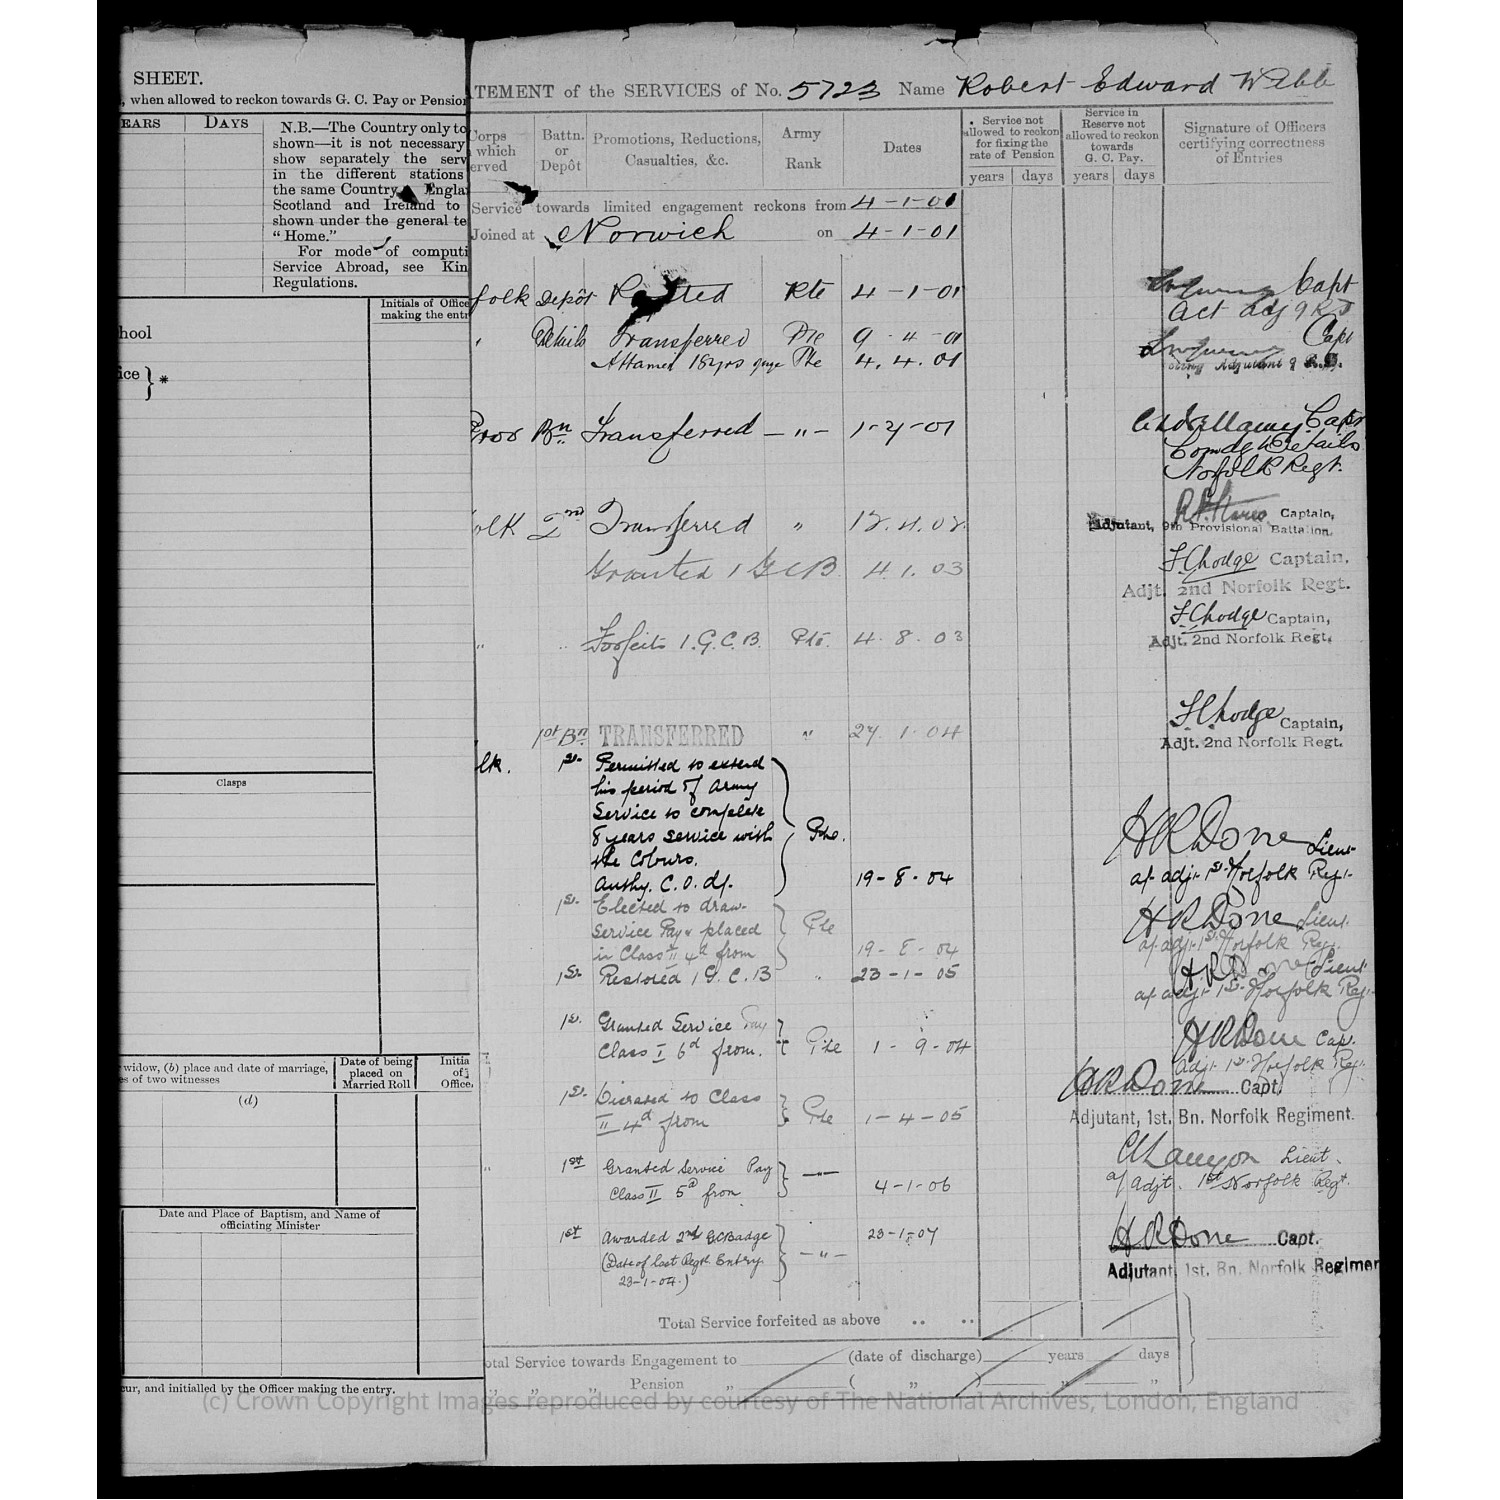 SHEET.
, when allowed to reckon towards G. C. Pay or Pension
EARS DAYS
N.B.—The Country only to
shown—it is not necessary
show separately the serv
in the different stations
the same Country, Engla
Scotland and Ireland to
shown under the general te
"Home."
For mode of computi
Service Abroad, see Kin
Regulations.
Initials of Office
making the entr
hool
ice } *
Clasps
widow, (b) place and date of marriage,
es of two witnesses
Date of being
placed on
Married Roll
Initia
of
Office
(d)
Date and Place of Baptism, and Name of
officiating Minister
cur, and initialled by the Officer making the entry.
ATEMENT of the SERVICES of No. 5723 Name Robert Edward Webb
Corps
which
erved
Battn.
or
Depôt
Promotions, Reductions,
Casualties, &c.
Army
Rank
Dates
Service not
allowed to reckon
for fixing the
rate of Pension
years days
Service in
Reserve not
allowed to reckon
towards
G. C. Pay.
years days
Signature of Officers
certifying correctness
of Entries
Service towards limited engagement reckons from 4-1-01
Joined at Norwich on 4-1-01
folk Depôt Posted Pte 4-1-01
Capt
Act Adj 9 R D
Details Transferred Pte 9-4-01
Capt
Attained 18 yrs age Pte 4.4.01
Adjutant 9 R.D.
Prov Bn. Transferred — " — 1-7-01
Capt
Comdg Details
Norfolk Regt.
olk 2nd Transferred " 12.4.02
Captain,
Adjutant, 9th Provisional Battalion.
Granted 1 G C B 4.1.03
F. C. Lodge Captain,
Adjt. 2nd Norfolk Regt.
" " Forfeits 1.G.C.B. Pte. 4.8.03
F. C. Lodge Captain,
Adjt. 2nd Norfolk Regt.
1st Bn. TRANSFERRED " 27.1.04
F. C. Lodge Captain,
Adjt. 2nd Norfolk Regt.
lk. 1st Permitted to extend
his period of Army
Service to complete
8 years service with
the Colours. Pte.
Authy. C.O. d/. 19-8-04
H R Done Lieut
a/ adjt 1st Norfolk Regt.
1st Elected to draw
Service Pay & placed
in Class II 4d from Pte 19-8-04
H R Done Lieut.
a/ adjt 1st Norfolk Reg.
1st Restored 1 G.C.B " 23-1-05
H.R Done Lieut
a/ adjt 1st Norfolk Reg.
1st Granted Service Pay
Class I 6d from. Pte 1-9-04
H R Done Cap.
Adjt 1st Norfolk Reg.
1st Class
II 4d from Pte 1-4-05
H R Done Capt,
Adjutant, 1st. Bn. Norfolk Regiment.
" 1st Granted Service Pay
Class II 5d from — " — 4-1-06
Lieut.
a/ Adjt. 1st Norfolk Regt.
1st Awarded 2nd G.C Badge 23-1-07
(Date of last Regtl. Entry
23-1-04.) — " —
H R Done Capt.
Adjutant, 1st. Bn. Norfolk Regimen
Total Service forfeited as above .. ..
otal Service towards Engagement to (date of discharge) years days
" " " Pension " ( " ) " "
(c) Crown Copyright Images reproduced by courtesy of The National Archives, London, England